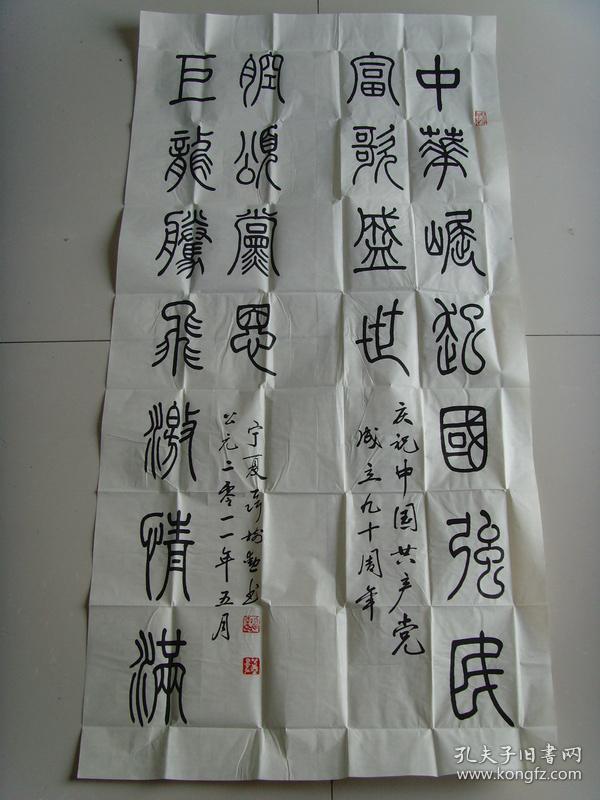 中華崛起國強民
富歌盛世
庆祝中国共产党
成立九十周年
巨龍騰飛激情滿
腔頌黨恩
宁夏 树 书
公元二零一一年五月
孔夫子旧书网
www.kongfz.com